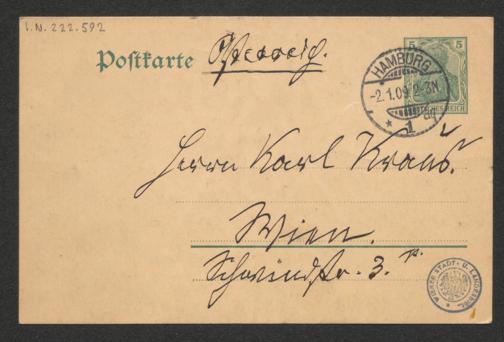 I.N. 222.592
Postkarte Österreich.
5 5
HAMBURG
-2.1.09 2-3N
* 1
REICH
Herrn Karl Kraus.
Wien.
Schwindstr. 3.
WIENER STADT- U. LANDESBIBL.